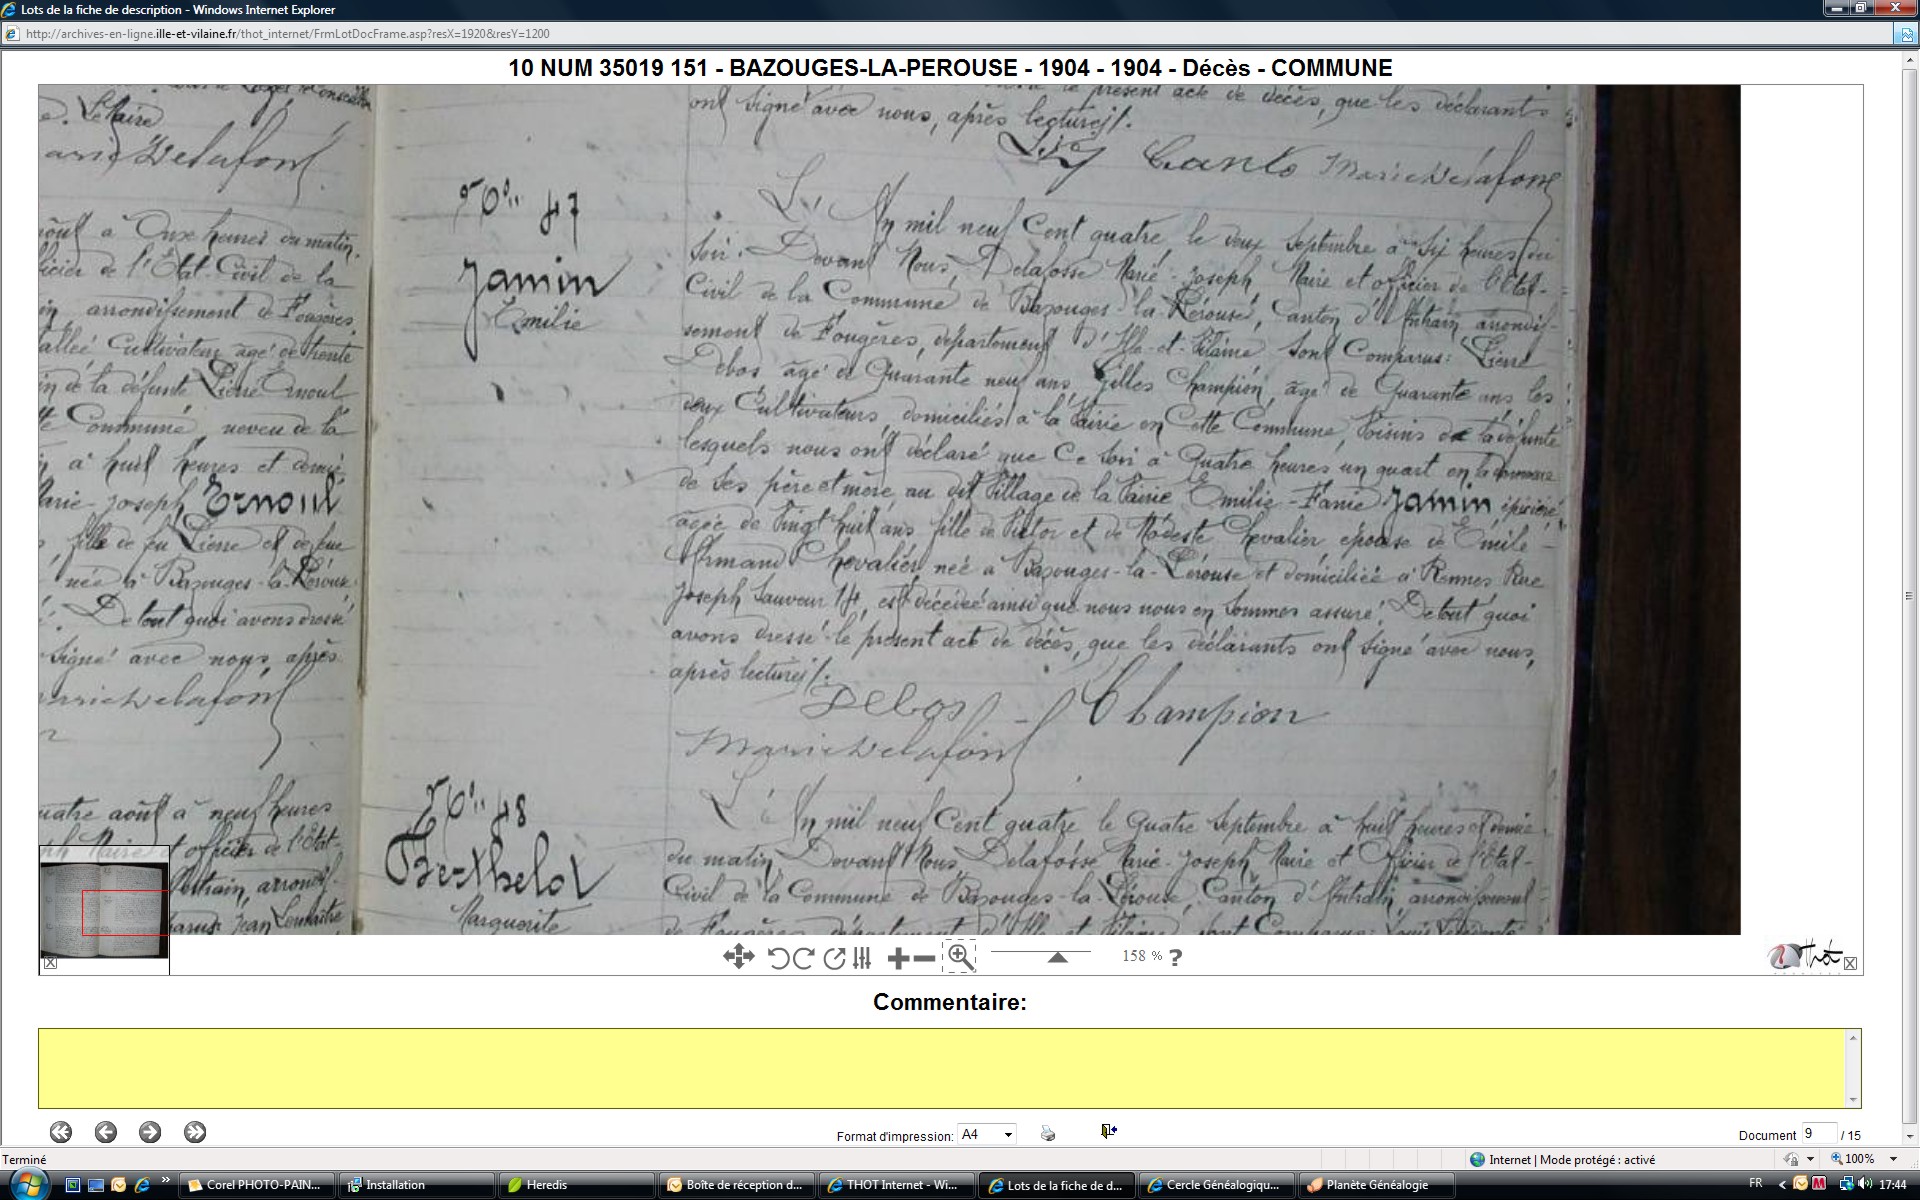 Lots de la fiche de description - Windows Internet Explorer
http://archives-en-ligne.ille-et-vilaine.fr/thot_internet/FrmLotDocFrame.asp?resX=1920&resY=1200
10 NUM 35019 151 - BAZOUGES-LA-PEROUSE - 1904 - 1904 - Décès - COMMUNE
Lemaire
Marie Delafosse
août à Onze heures du matin.
officier de l'Etat Civil de la
arrondissement de Fougères
Vallée Cultivateur âgé de trente
de la défunte Pierre Ernoul
Commune, neveu de la
à huit heures et demie
Marie-Joseph Ernoul
, fille de feu Pierre et de feue
née à Bazouges-la-Pérouse
De tout quoi avons dressé
signé avec nous, après
Marie Delafosse
quatre août à neuf heures
Maire et officier de l'Etat-
d'Antrain, arrondis-
Jean Lemaitre
le présent acte de décès, que les déclarants
ont signé avec nous, après lecture ./.
Marie Delafosse
N° 47
Jamin
Emilie
L'An mil neuf Cent quatre, le deux Septembre à Six heures du
Soir. Devant Nous, Delafosse Marie-Joseph Maire et officier de l'Etat-
Civil de la Commune de Bazouges-la-Pérouse, Canton d'Antrain arrondis-
sement de Fougères, département d'Ille-et-Vilaine Sont Comparus: Pierre
Debos âgé de Quarante neuf ans, Gilles Champion, âgé de Quarante ans les
deux Cultivateurs, domiciliés à la Pairie en Cette Commune, Voisins de la défunte
lesquels nous ont déclaré que Ce Soir à Quatre heures un quart en la demeure
de Ses père et mère au dit Village de la Pairie Emilie-Fanie Jamin épicière
agée de Vingt huit ans fille de Victor et de Modeste Chevalier épouse de Emile-
Armand Chevalier née à Bazouges-la-Pérouse et domiciliée à Rennes Rue
Joseph Sauveur 14, est décédée ainsi que nous nous en Sommes assuré. De tout quoi
avons dressé le présent acte de décès, que les déclarants ont Signé avec nous,
après lecture ./.
Debos Champion
Marie Delafosse
N° 48
Berthelot
Marguerite
L'An mil neuf Cent quatre le Quatre Septembre à huit heures et demie
du matin Devant Nous, Delafosse Marie-Joseph Maire et Officier de l'Etat-
Civil de la Commune de Bazouges-la-Pérouse, Canton d'Antrain, arrondissement
de Fougères département d'Ille et Vilaine sont Comparus: Louis
158 % ?
Thot
Commentaire:
Format d'impression: A4
Document 9 / 15
Terminé
Internet | Mode protégé : activé
100%
Corel PHOTO-PAIN...
Installation
Heredis
Boîte de réception d...
THOT Internet - Wi...
Lots de la fiche de d...
Cercle Généalogiqu...
Planète Généalogie
FR
17:44